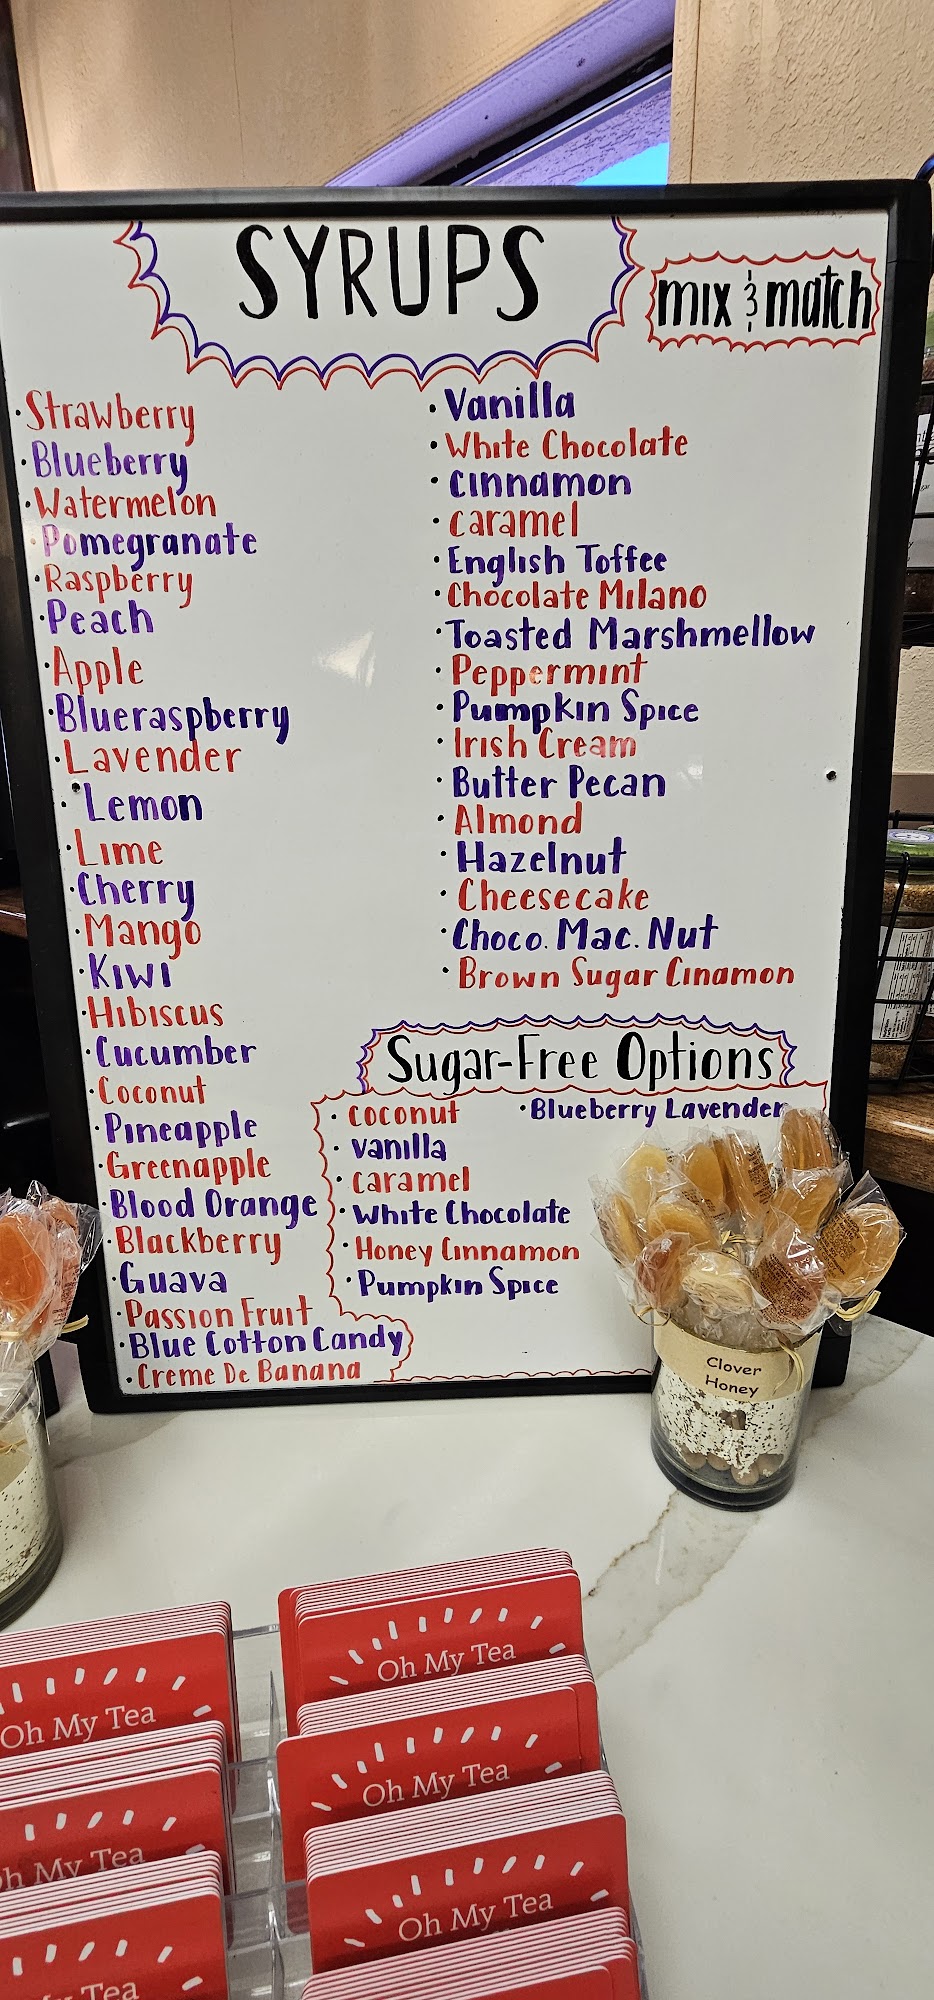 SYRUPS
mix & match
· Strawberry
· Blueberry
· Watermelon
· Pomegranate
· Raspberry
· Peach
· Apple
· Blueraspberry
· Lavender
· Lemon
· Lime
· Cherry
· Mango
· Kiwi
· Hibiscus
· Cucumber
· Coconut
· Pineapple
· Greenapple
· Blood Orange
· Blackberry
· Guava
· Passion Fruit
· Blue Cotton Candy
· Creme De Banana
· Vanilla
· White Chocolate
· Cinnamon
· Caramel
· English Toffee
· Chocolate Milano
· Toasted Marshmellow
· Peppermint
· Pumpkin Spice
· Irish Cream
· Butter Pecan
· Almond
· Hazelnut
· Cheesecake
· Choco. Mac. Nut
· Brown Sugar Cinamon
Sugar-Free Options
· Coconut
· Vanilla
· Caramel
· White Chocolate
· Honey Cinnamon
· Pumpkin Spice
· Blueberry Lavender
Clover
Honey
Oh My Tea
Oh My Tea
Oh My Tea
Oh My Tea
Oh My Tea
My Tea